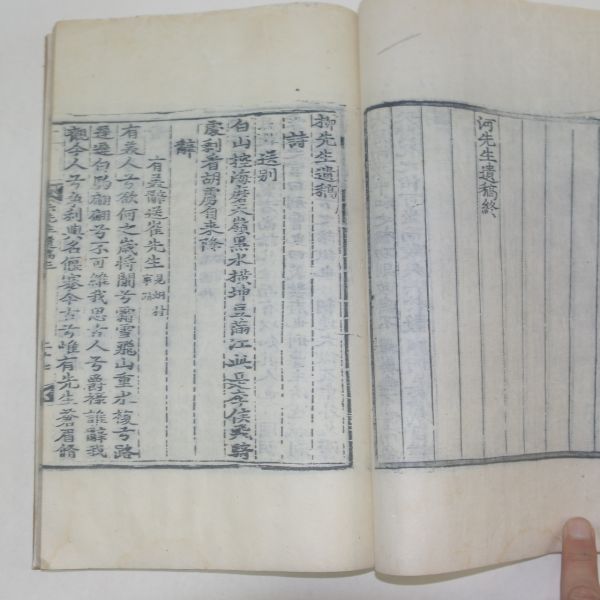 河先生遺稿終
柳先生遺稿
詩
送別
白山控海磨天嶺黑水橫坤豆滿江此是李侯飛
處剩看胡虜自來降
辭
有美辭送崔先生
有美人兮欲何之歲將闌兮霜雪飛山重水複兮路
逶遲白馬翩翩兮不可縶我思古人兮爵祿誰辭我
觀今人兮奔利與名偃蹇今古兮唯有先生蒼眉脩